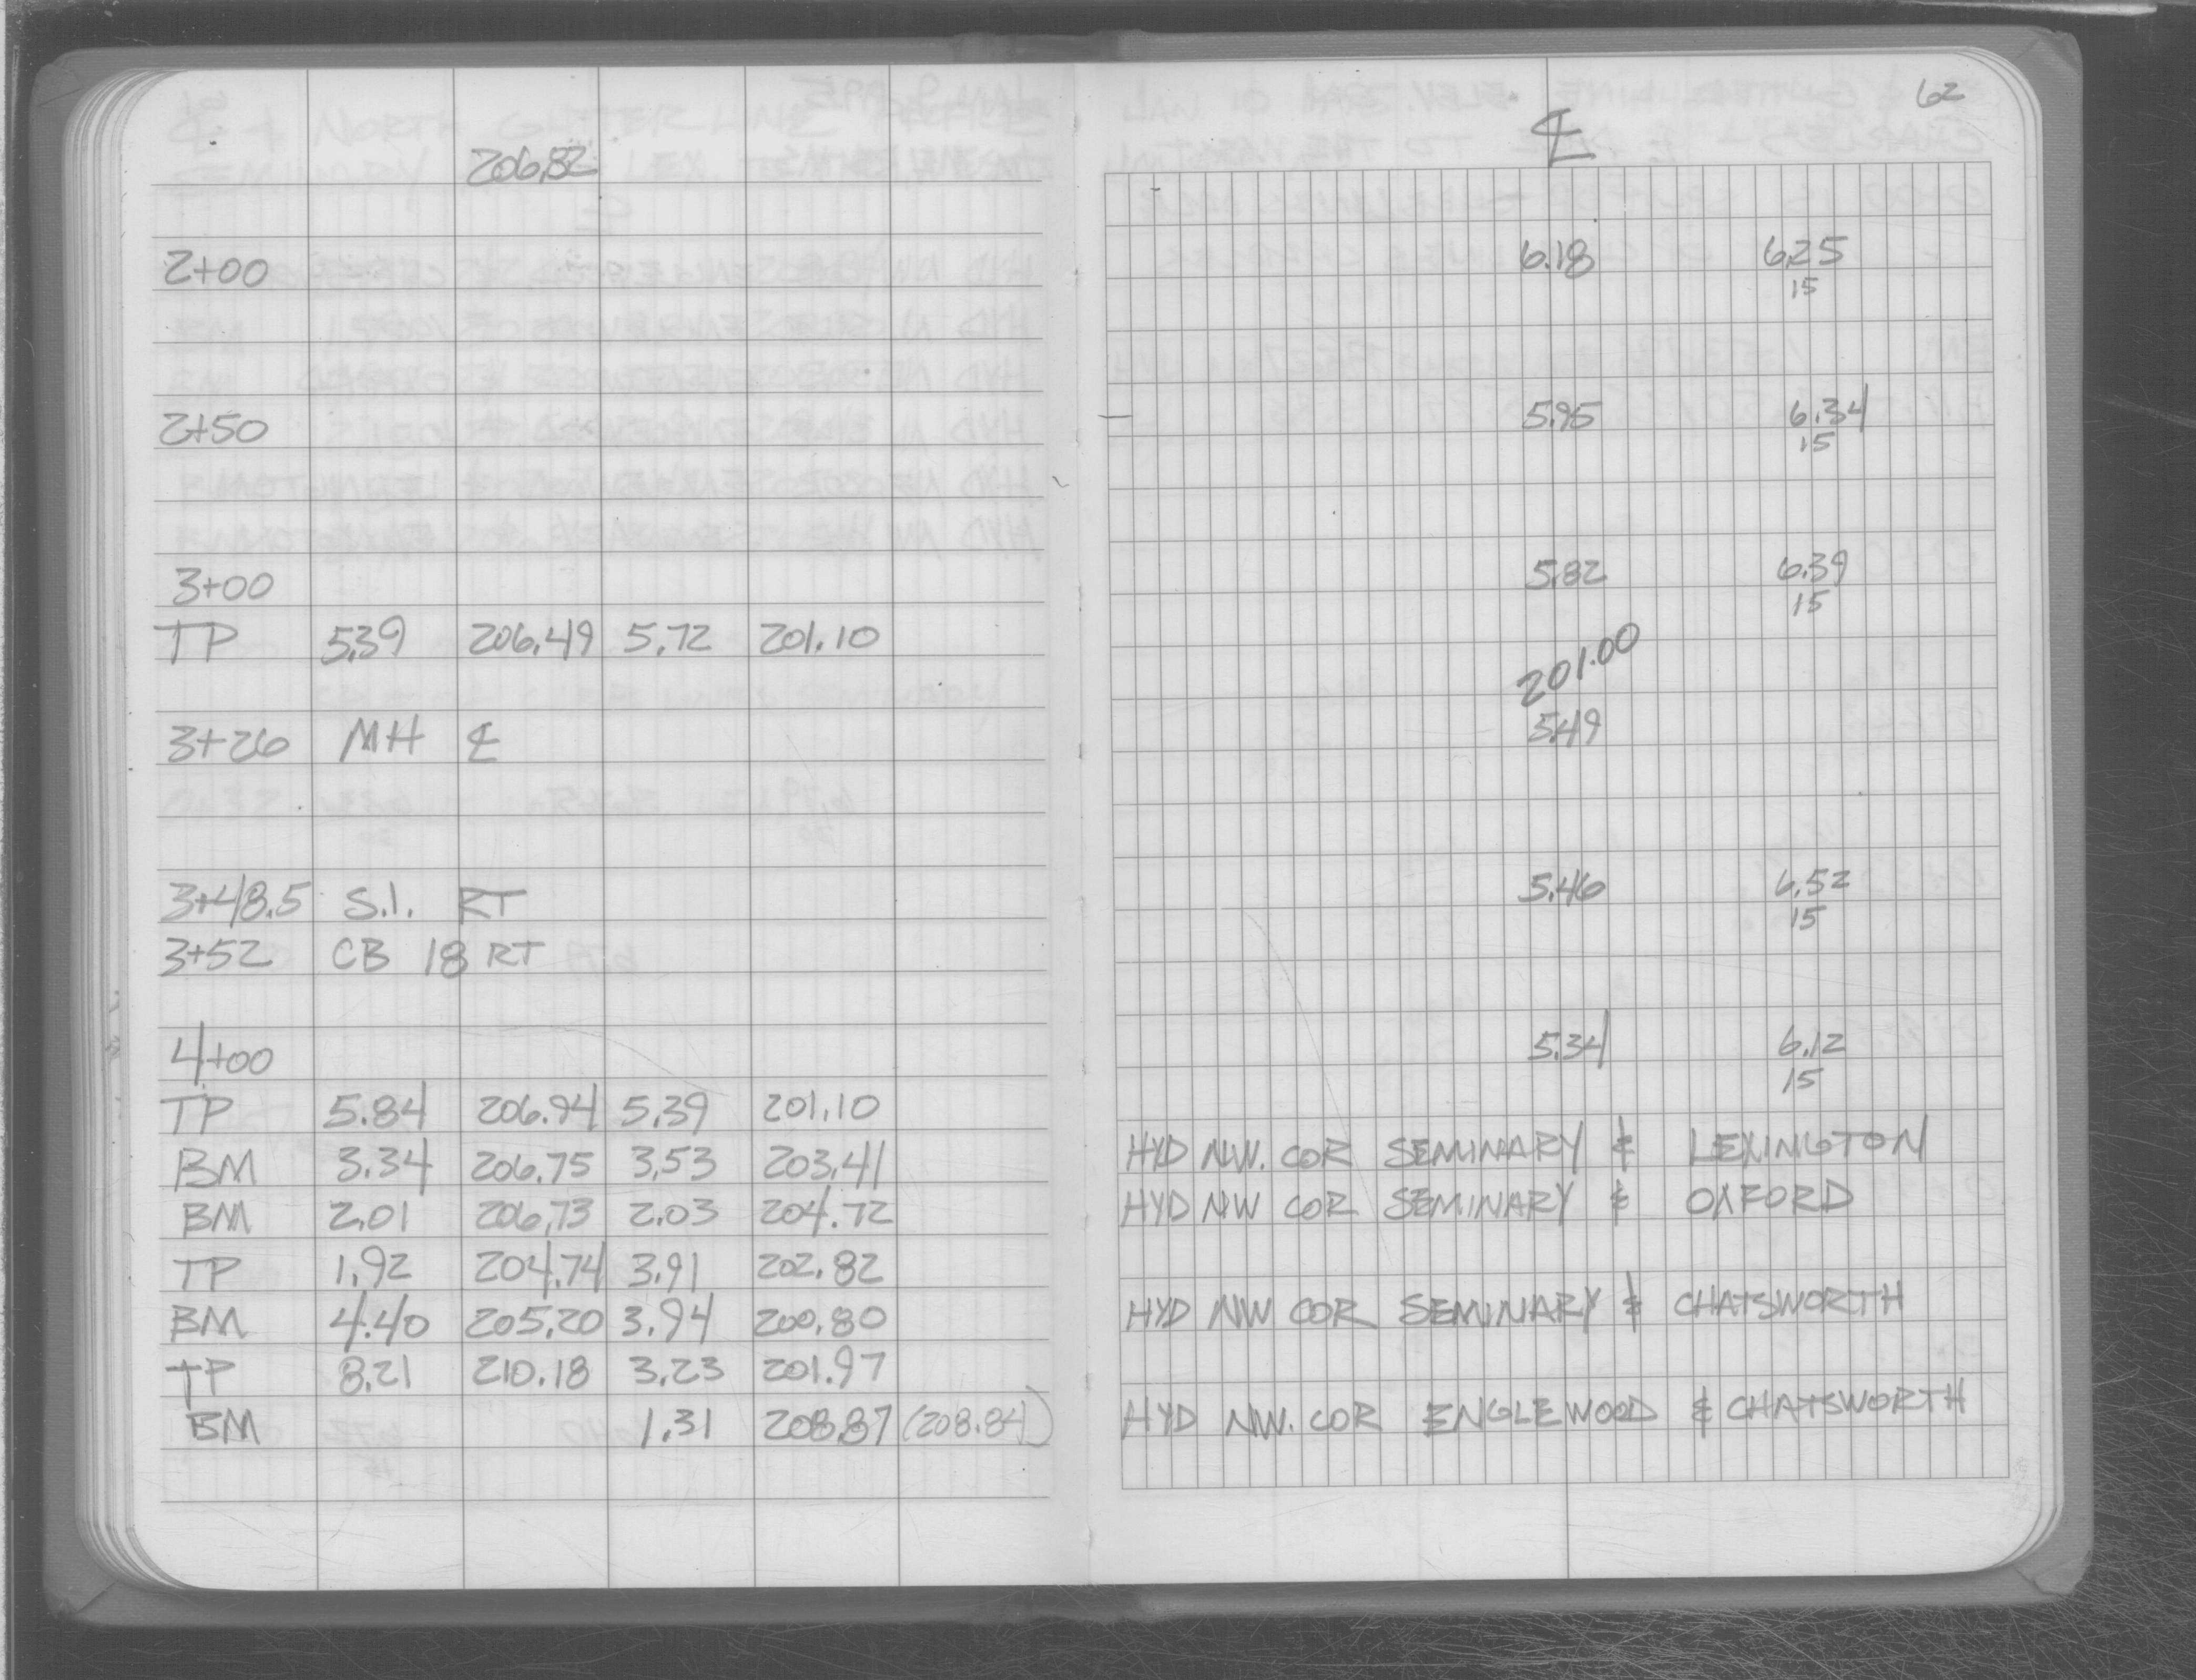 62
℄
206.82
2+00 6.18 6.25
15
2+50 5.95 6.34
15
3+00 5.82 6.39
15
TP 5.39 206.49 5.72 201.10
201.00
3+26 MH ℄ 5.49
3+48.5 S.I. RT 5.46 6.52
15
3+52 CB 18 RT
4+00 5.34 6.12
15
TP 5.84 206.94 5.39 201.10
BM 3.34 206.75 3.53 203.41 HYD NW. COR SEMINARY & LEXINGTON
BM 2.01 206.73 2.03 204.72 HYD NW COR SEMINARY & OXFORD
TP 1.92 204.74 3.91 202.82
BM 4.40 205.20 3.94 200.80 HYD NW COR SEMINARY & CHATSWORTH
TP 8.21 210.18 3.23 201.97
BM 1.31 208.87 (208.84) HYD NW. COR ENGLEWOOD & CHATSWORTH